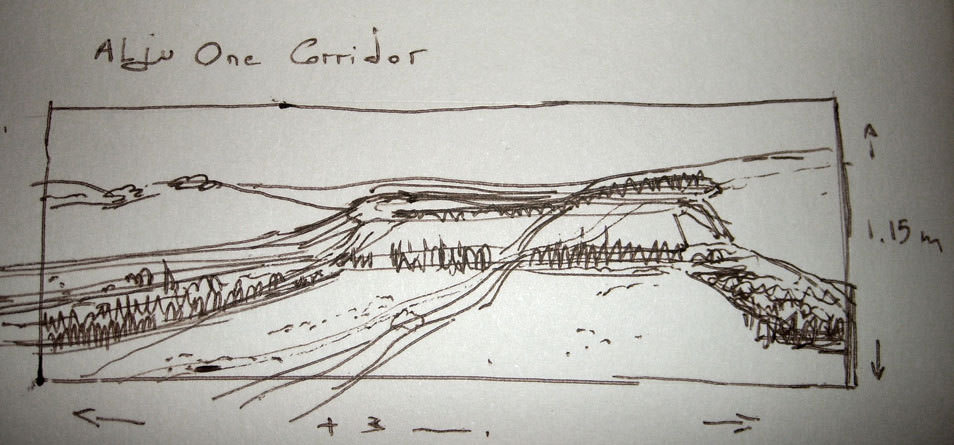 One Corridor
1.15 m
+ 3